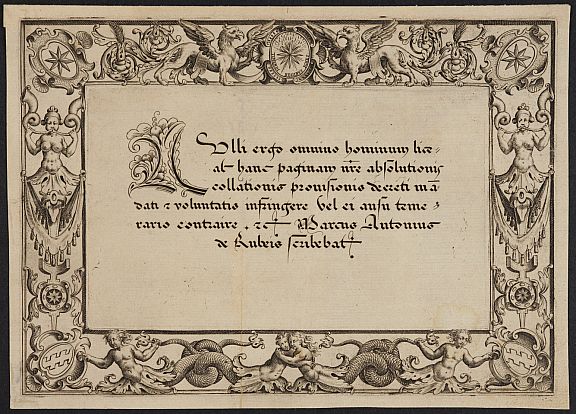 NUlli ergo omnino hominum lice=
at hanc paginam nr̄e absolutionis
collationis provisionis decreti mā
dati ⁊ voluntatis infringere vel ei ausu teme=
rario contraire . ⁊c Marcus Antonius
de Rubeis scribebat